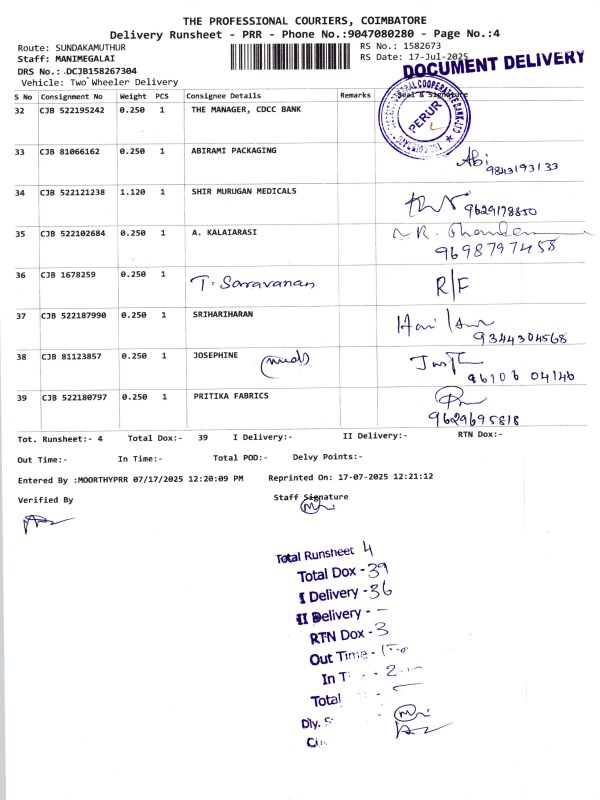 THE PROFESSIONAL COURIERS, COIMBATORE
Delivery Runsheet - PRR - Phone No.:9047080280 - Page No.:4
Route: SUNDAKAMUTHUR RS No.: 1582673
Staff: MANIMEGALAI RS Date: 17-Jul-2025
DRS No.: DCJB158267304
Vehicle: Two Wheeler Delivery
DOCUMENT DELIVERY
S No Consignment No Weight PCS Consignee Details Remarks Seal & Signature
32 CJB 522195242 0.250 1 THE MANAGER, CDCC BANK
PERUR
33 CJB 81066162 0.250 1 ABIRAMI PACKAGING Abi
9843193133
34 CJB 522121238 1.120 1 SHIR MURUGAN MEDICALS 9629178850
35 CJB 522102684 0.250 1 A. KALAIARASI
9698797458
36 CJB 1678259 0.250 1 T. Saravanan R/F
37 CJB 522187990 0.250 1 SRIHARIHARAN
9344304568
38 CJB 81123857 0.250 1 JOSEPHINE
96106 04146
39 CJB 522180797 0.250 1 PRITIKA FABRICS
9629695818
Tot. Runsheet:- 4 Total Dox:- 39 I Delivery:- II Delivery:- RTN Dox:-
Out Time:- In Time:- Total POD:- Delvy Points:-
Entered By :MOORTHYPRR 07/17/2025 12:20:09 PM Reprinted On: 17-07-2025 12:21:12
Verified By Staff Signature
Total Runsheet 4
Total Dox - 39
I Delivery - 36
II Delivery - -
RTN Dox - 3
Out Time -
In T
Total
Dly. S